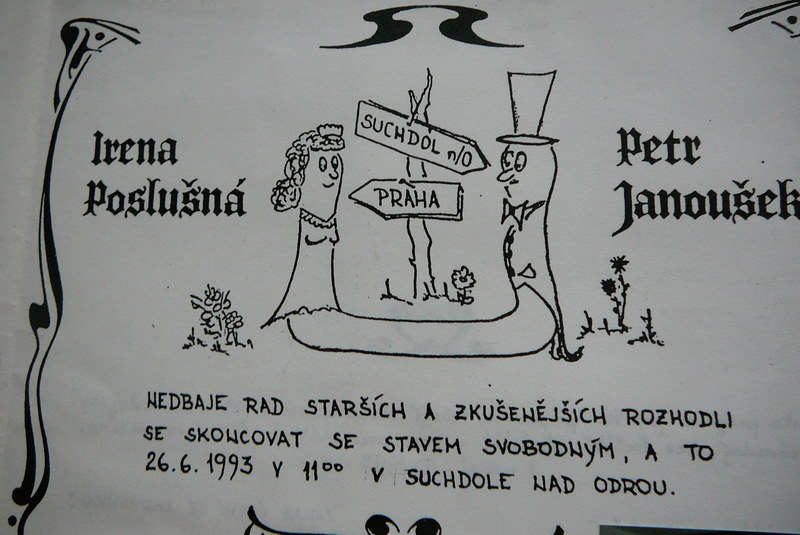 Irena
Poslušná
SUCHDOL n/O
PRAHA
Petr
Janoušek
NEDBAJE RAD STARŠÍCH A ZKUŠENĚJŠÍCH ROZHODLI
SE SKONCOVAT SE STAVEM SVOBODNÝM, A TO
26.6.1993 V 11⁰⁰ V SUCHDOLE NAD ODROU.